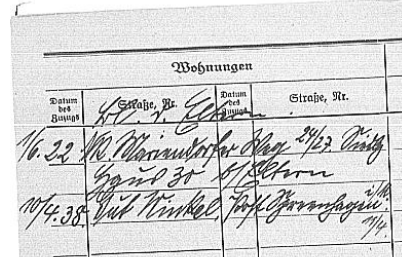 Wohnungen
Datum des Zuzugs
Straße, Nr.
Datum des Zuzugs
Straße, Nr.
b. d. Eltern
1/6. 22 Mariendorfer Weg 24/27 Siedlg
Haus 30 b/Eltern
10/4. 38. Gut Winkel, Post Spreenhagen i/M.
11/4.